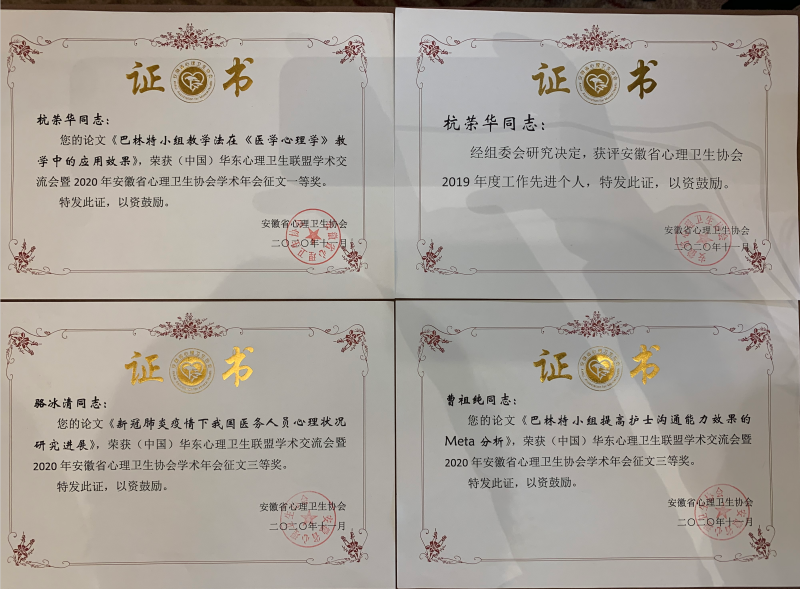 证书
杭荣华同志：
您的论文《巴林特小组教学法在《医学心理学》教
学中的应用效果》，荣获（中国）华东心理卫生联盟学术交
流会暨 2020 年安徽省心理卫生协会学术年会征文一等奖。
特发此证，以资鼓励。
安徽省心理卫生协会
二〇二〇年十一月
证书
杭荣华同志：
经组委会研究决定，获评安徽省心理卫生协会
2019 年度工作先进个人，特发此证，以资鼓励。
安徽省心理卫生协会
二〇二〇年十一月
证书
骆冰清同志：
您的论文《新冠肺炎疫情下我国医务人员心理状况
研究进展》，荣获（中国）华东心理卫生联盟学术交流会暨
2020 年安徽省心理卫生协会学术年会征文三等奖。
特发此证，以资鼓励。
安徽省心理卫生协会
二〇二〇年十一月
证书
曹祖纯同志：
您的论文《巴林特小组提高护士沟通能力效果的
Meta 分析》，荣获（中国）华东心理卫生联盟学术交流会暨
2020 年安徽省心理卫生协会学术年会征文三等奖。
特发此证，以资鼓励。
安徽省心理卫生协会
二〇二〇年十一月